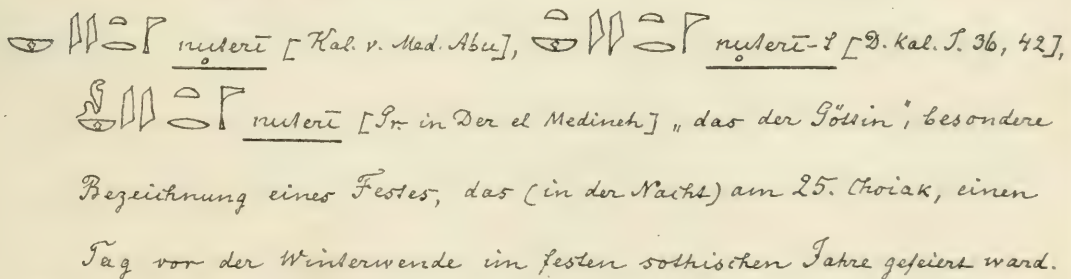 nuterī [Kal. v. Med. Abu], nuterī-t [D. Kal. T. 36, 42],
nuterī [Gr. in Der el Medineh] „das der Göttin“, besondere
Bezeichnung eines Festes, das (in der Nacht) am 25. Choiak, einen
Tag vor der Winterwende im festen sothischen Jahre gefeiert ward.